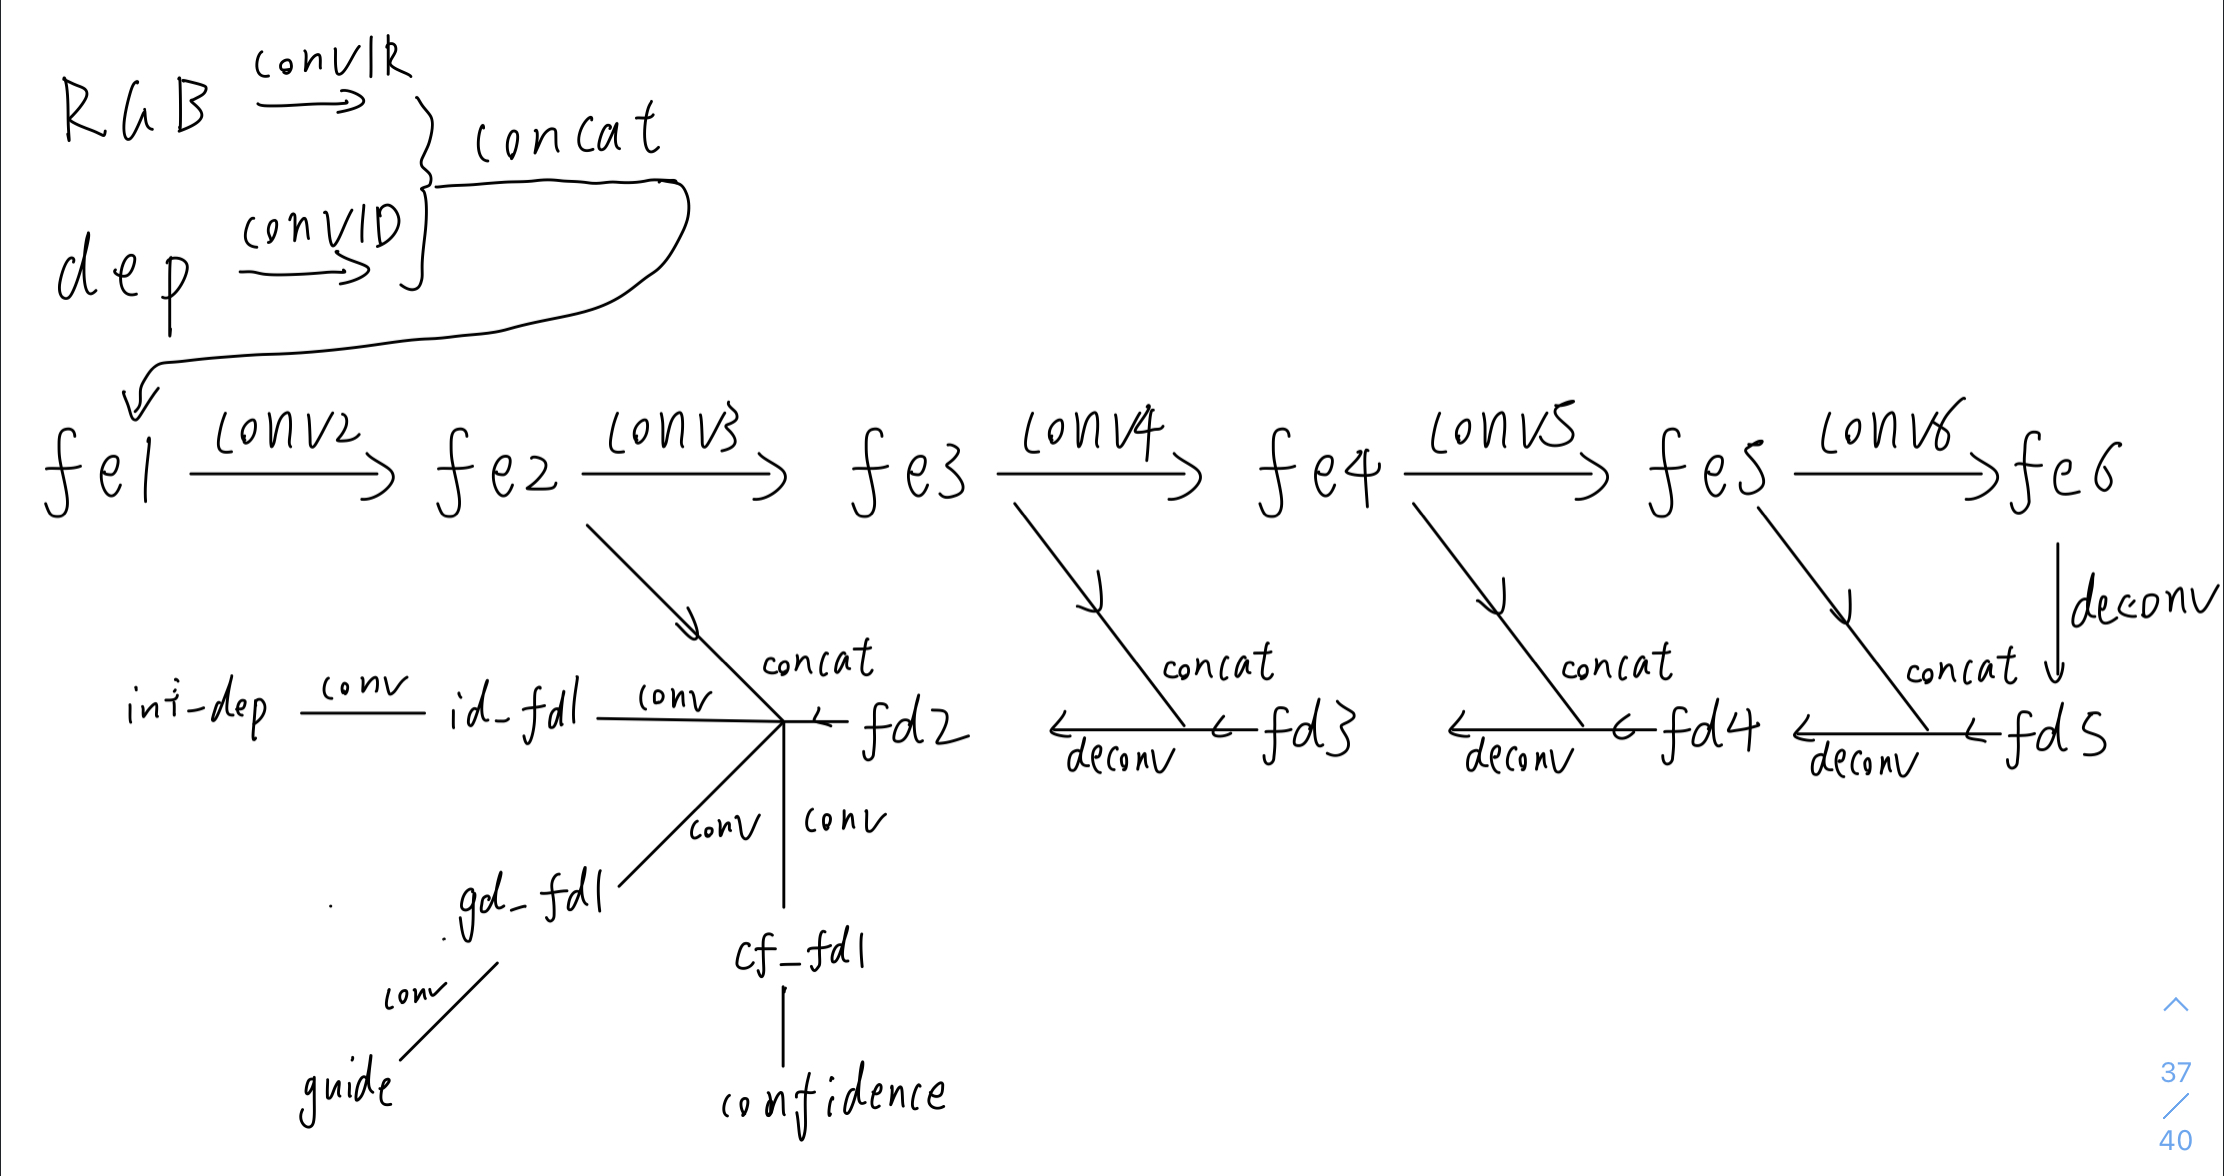 RGB conv1R
concat
dep conv1D
fe1 conv2 fe2 conv3 fe3 conv4 fe4 conv5 fe5 conv6 fe6
deconv
concat concat concat concat
int-dep conv id_fd1 conv fd2 deconv fd3 deconv fd4 deconv fd5
conv conv
gd_fd1
cf_fd1
conv
guide
confidence
37
/
40